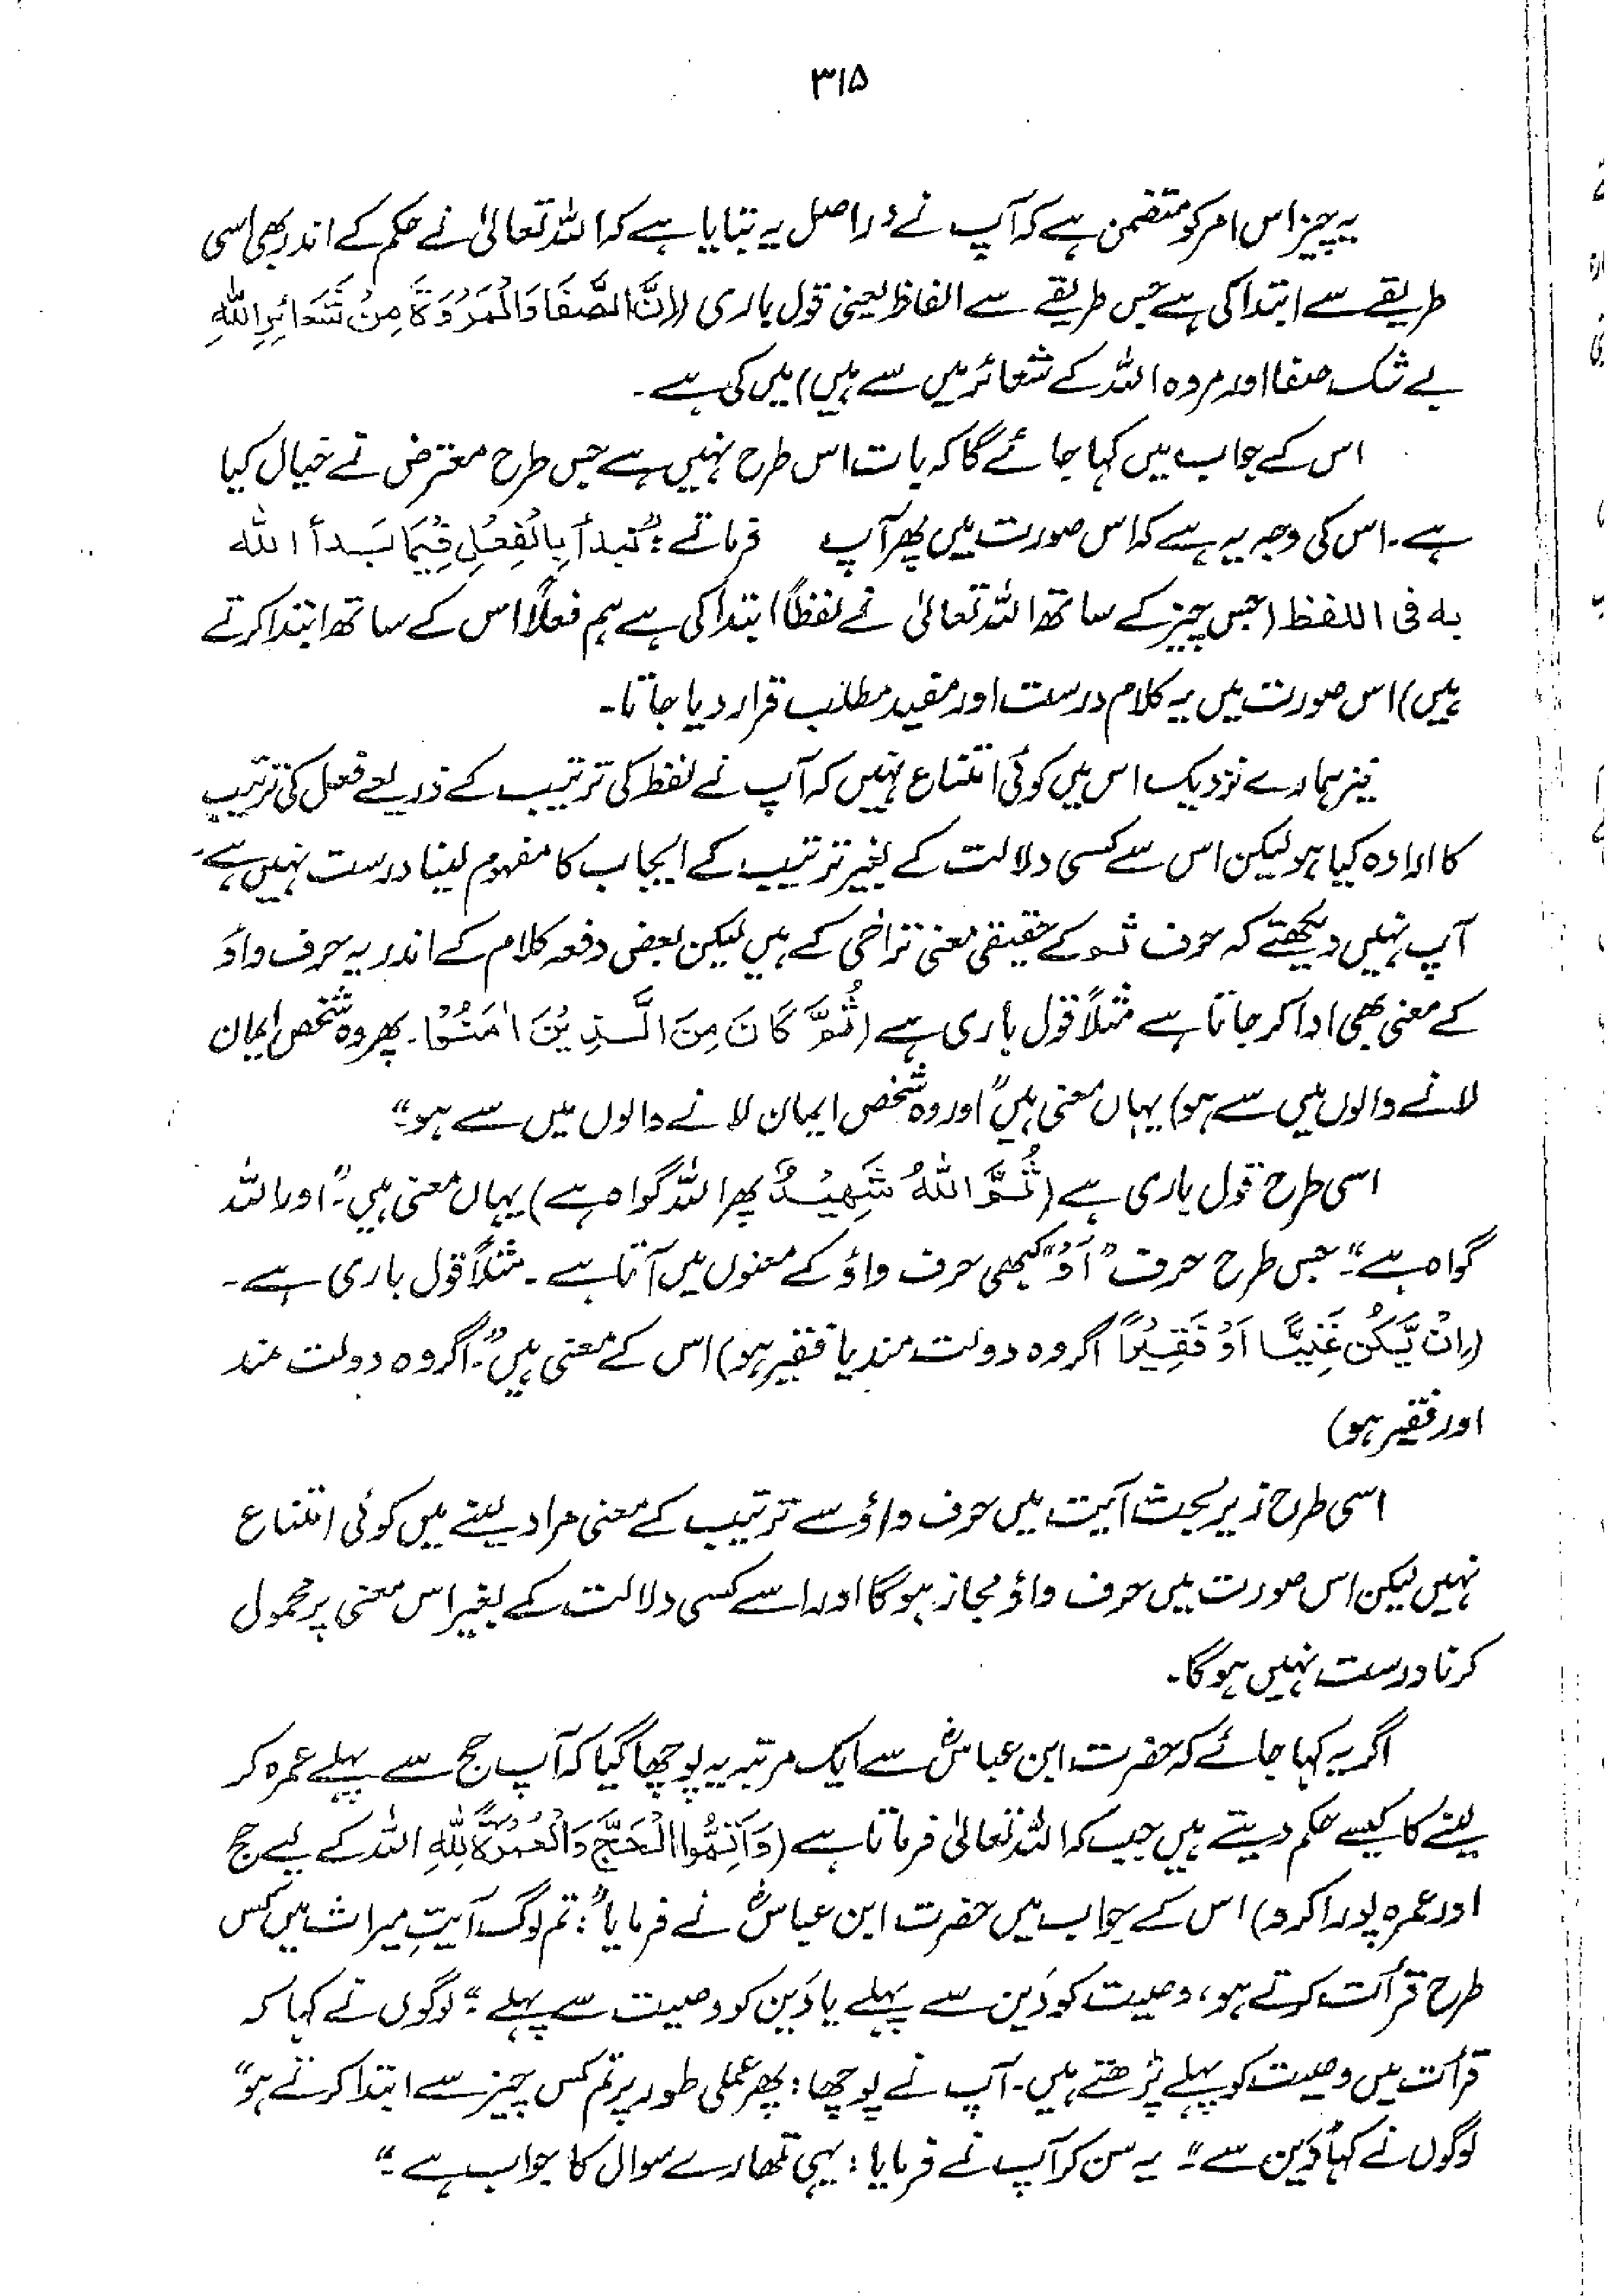 ۳۱۵
یہ چیز اس امر کو متضمن ہے کہ آپ نے دراصل یہ بتایا ہے کہ اللہ تعالیٰ نے حکم کے اندر بھی اسی
طریقے سے ابتدا کی ہے جس طریقے سے الفاظ یعنی قول باری (اِنَّ الصَّفَا وَالْمَرْوَةَ مِنْ شَعَائِرِ اللّٰهِ
بے شک صفا اور مروہ اللہ کے شعائر میں سے ہیں) میں کی ہے۔
اس کے جواب میں کہا جائے گا کہ بات اس طرح نہیں ہے جس طرح معترض نے خیال کیا
ہے۔ اس کی وجہ یہ ہے کہ اس صورت میں پھر آپ فرماتے: "نبدأ بِالْفِعْلِ فِيْمَا بَدأ الله
به فی اللفظ (جس چیز کے ساتھ اللہ تعالیٰ نے لفظاً ابتدا کی ہے ہم فعلاً اس کے ساتھ ابتدا کرتے
ہیں) اس صورت میں یہ کلام درست اور مفید مطلب قرار دیا جاتا۔
نیز ہمارے نزدیک اس میں کوئی امتناع نہیں کہ آپ نے لفظ کی ترتیب کے ذریعے فعل کی ترتیب
کا ارادہ کیا ہو لیکن اس سے کسی دلالت کے بغیر ترتیب کے ایجاب کا مفہوم لینا درست نہیں ہے۔
آپ نہیں دیکھتے کہ حرف ثم کے حقیقی معنی تراخی کے ہیں لیکن بعض دفعہ کلام کے اندر یہ حرف واؤ
کے معنی بھی ادا کر جاتا ہے مثلاً قول باری ہے (ثُمَّ كَانَ مِنَ الَّذِيْنَ اٰمَنُوْا۔ پھر وہ شخص ایمان
لانے والوں میں سے ہو) یہاں معنی ہیں "اور وہ شخص ایمان لانے والوں میں سے ہو"
اسی طرح قول باری ہے (ثُمَّ اللّٰهُ شَهِيْدٌ پھر اللہ گواہ ہے) یہاں معنی ہیں۔ "اور اللہ
گواہ ہے"۔ جس طرح حرف "اَوْ" کبھی حرف واؤ کے معنوں میں آتا ہے۔ مثلاً قول باری ہے۔
(اِنْ يَّكُنْ غَنِيًّا اَوْ فَقِيْرًا اگر وہ دولت مند یا فقیر ہو) اس کے معنی ہیں۔ "اگر وہ دولت مند
اور فقیر ہو)
اسی طرح زیر بحث آیت میں حرف واؤ سے ترتیب کے معنی مراد لینے میں کوئی امتناع
نہیں لیکن اس صورت میں حرف واؤ مجاز ہوگا اور اسے کسی دلالت کے بغیر اس معنی پر محمول
کرنا درست نہیں ہوگا۔
اگر یہ کہا جائے کہ حضرت ابن عباسؓ سے ایک مرتبہ یہ پوچھا گیا کہ آپ حج سے پہلے عمرہ کر
لینے کا کیسے حکم دیتے ہیں جب کہ اللہ تعالیٰ فرماتا ہے (وَاَتِمُّوا الْحَجَّ وَالْعُمْرَةَ لِلّٰهِ اللہ کے لیے حج
اور عمرہ پورا کرو) اس کے جواب میں حضرت ابن عباسؓ نے فرمایا: "تم لوگ آیتِ میراث میں کس
طرح قرأت کرتے ہو، وصیت کو دَین سے پہلے یا دَین کو وصیت سے پہلے"؛ لوگوں نے کہا کہ
قرأت میں وصیت کو پہلے پڑھتے ہیں۔ آپ نے پوچھا: پھر عملی طور پر تم کس چیز سے ابتدا کرتے ہو"
لوگوں نے کہا "دَین سے"۔ یہ سن کر آپ نے فرمایا: یہی تمہارے سوال کا جواب ہے۔"